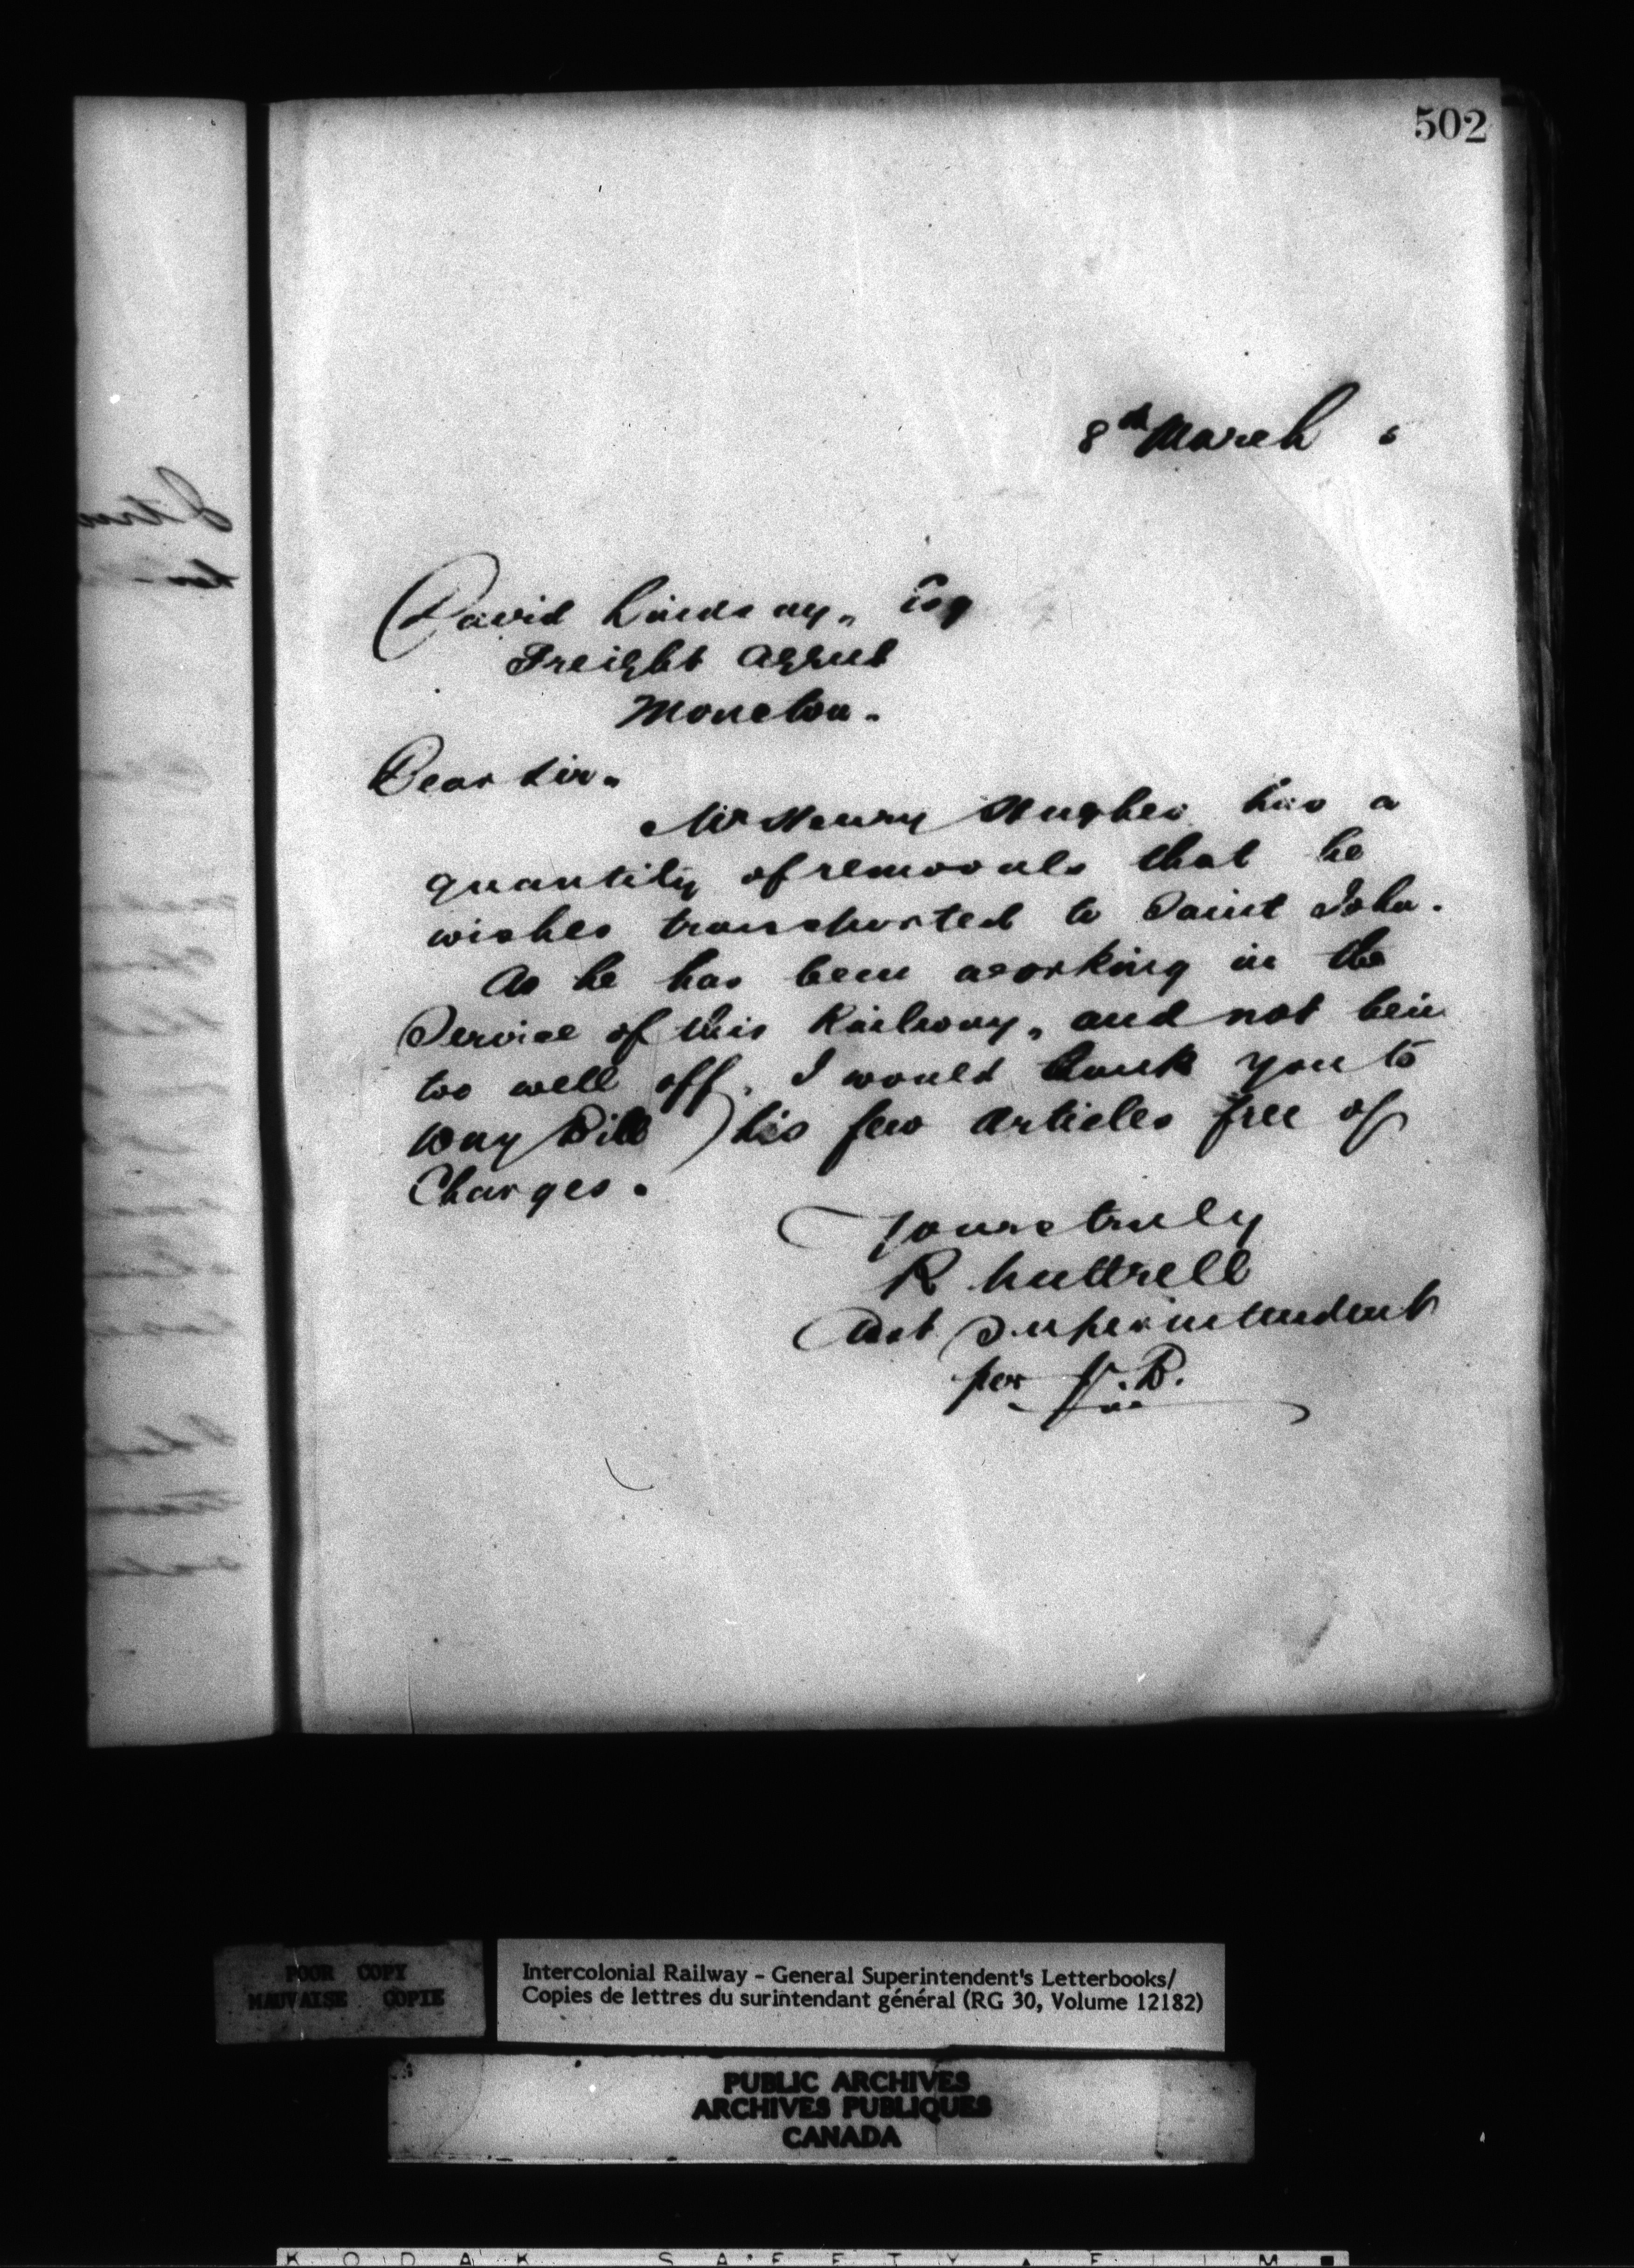 502
8th March 6
David Lindsay, Esq
Freight Agent
Moncton.
Dear Sir.
Mr Henry Hughes has a
quantity of removals that he
wishes transported to Saint John.
As he has been working in the
Service of this Railway, and not bein
too well off, I would thank you to
Way Bill his few articles free of
Charges.
Yours truly
R Luttrell
Asst Superintendent
per
POOR COPY
MAUVAISE COPIE
Intercolonial Railway - General Superintendent's Letterbooks/
Copies de lettres du surintendant général (RG 30, Volume 12182)
PUBLIC ARCHIVES
ARCHIVES PUBLIQUES
CANADA
KODAK SAFETY FILM